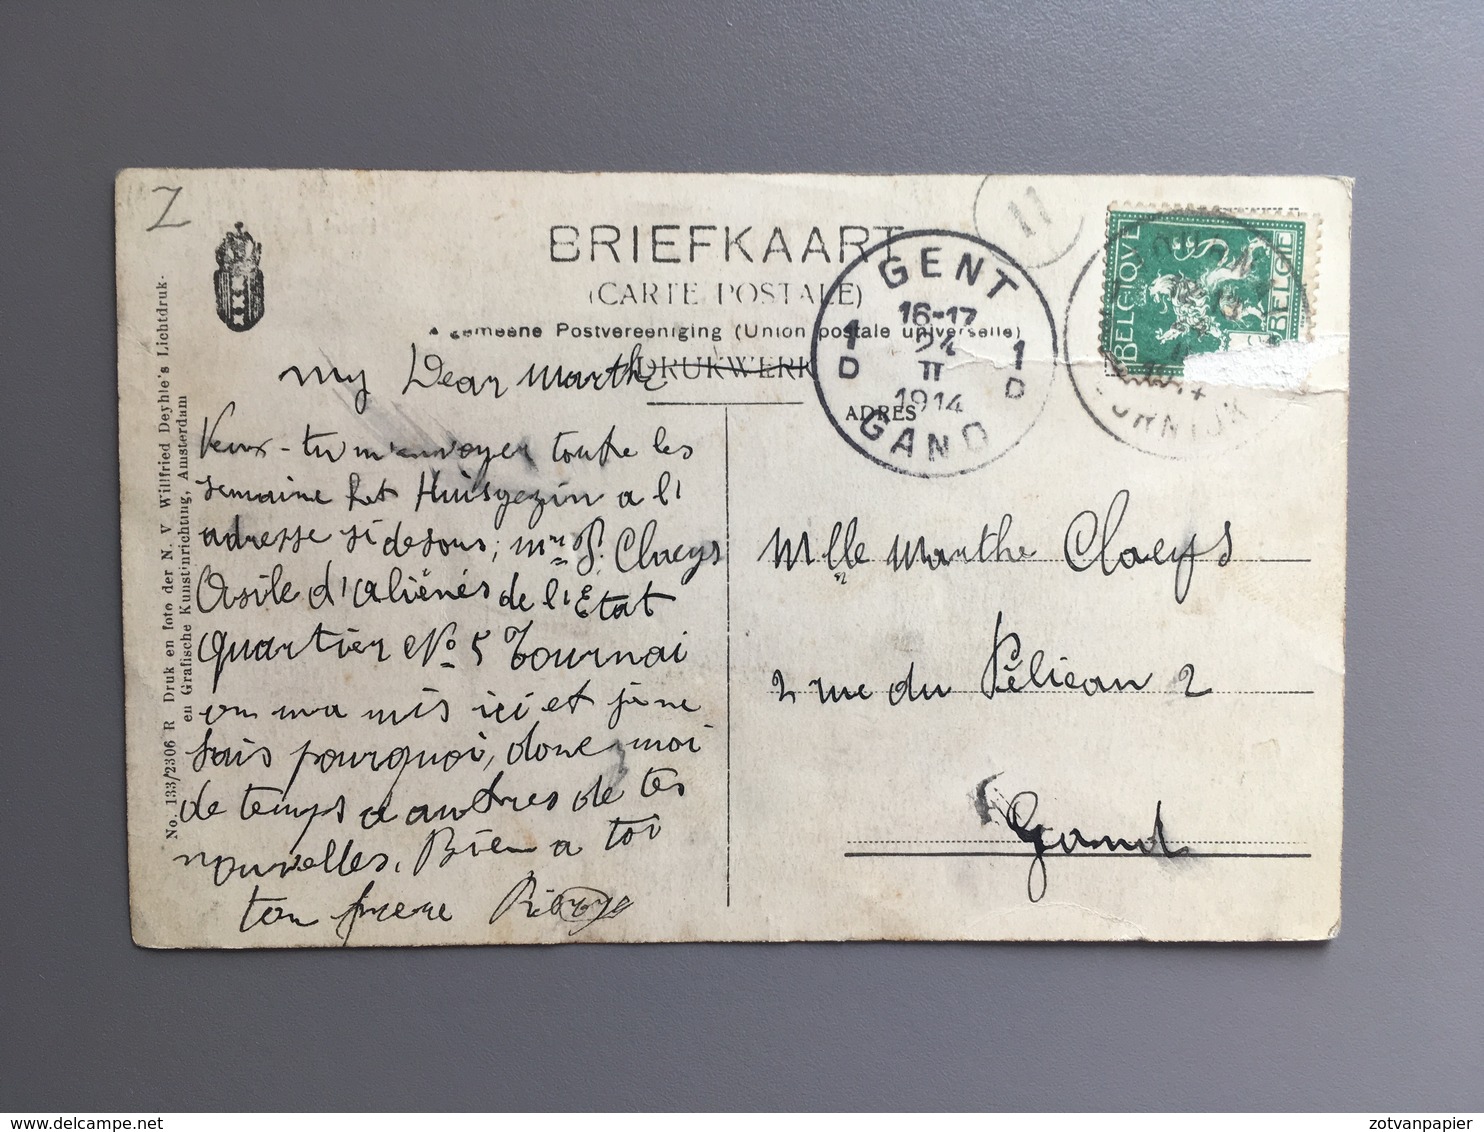 Z
BRIEFKAART
(CARTE POSTALE)
Algemeene Postvereeniging (Union postale universelle)
DRUKWERK
ADRES
11
GENT
16-17
24
II
1914
1 D
1 D
GAND
BELGIQUE
BELGIË
TOURNAI
TOURNAI
DOORNIJK
My Dear Marthe
Veux-tu m'envoyer toute les
semaine Het Huisgezin a l'
adresse si desous; Mr P. Claeys
Asile d'aliénés de l'Etat
Quartier No 5 Tournai
on ma mis ici et je ne
sais pourquoi, done moi
de temps a autres de tes
nouvelles. Bien a toi
ton frere
Mlle Marthe Claeys
2 rue du Pélican 2
Gand
No. 133/2306 R Druk en foto der N. V Willfried Deyhle's Lichtdruk-
en Grafische Kunstinrichting, Amsterdam
delcampe.net
zotvanpapier